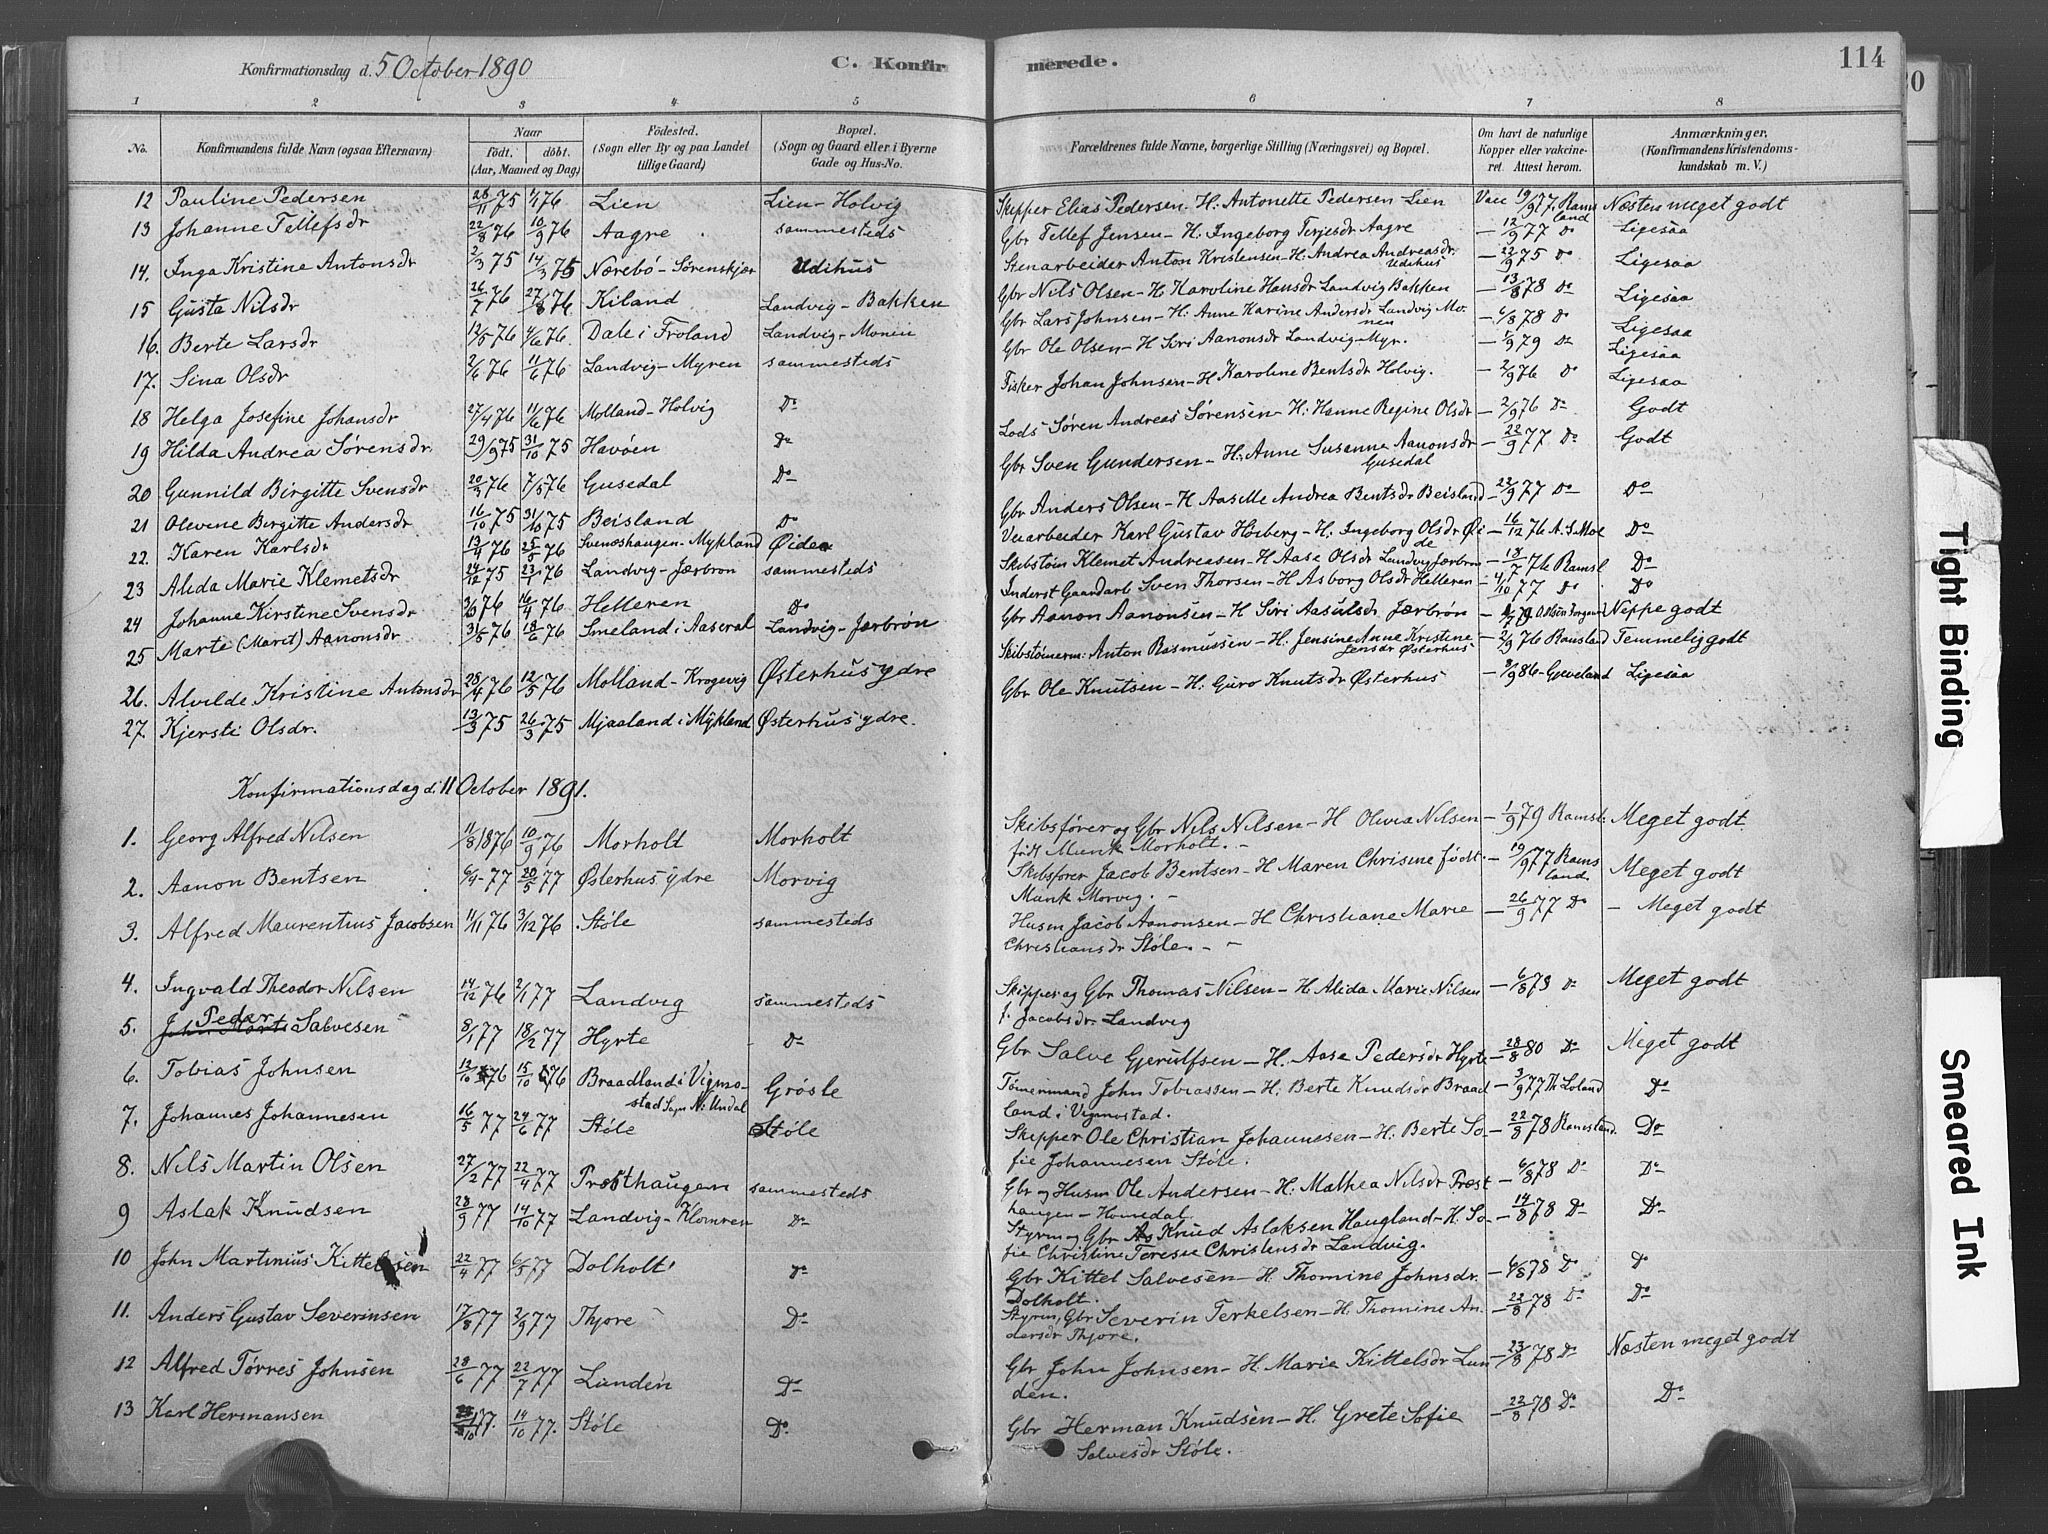 Konfirmationsdag d. 5 October 1890
C. Konfirmerede.
114
1 2 3 4 5 6 7 8
No.
Konfirmandens fulde Navn (ogsaa Efternavn)
Naar
født. døbt.
(Aar, Maaned og Dag)
Födested.
(Sogn eller By og paa Landet tillige Gaard)
Bopæl.
(Sogn og Gaard eller i Byerne Gade og Hus-No.
Forældrenes fulde Navne, borgerlige Stilling (Næringsvei) og Bopæl.
Om havt de naturlige Kopper eller vaccineret. Attest herom.
Anmærkninger.
(Konfirmandens Kristendomskundskab m. V.)
12 Pauline Pedersen 28/11 75 4/1 76 Lien Lien-Holvig Skipper Elias Pedersen - H. Antonette Pedersen Lien Vacc 19/9 77. Ramsland Næsten meget godt
13 Johanne Tellefsdr 22/8 76 10/9 76 Aagre sammesteds Gbr Tellef Jensen - H. Ingeborg Terjesdr Aagre - 12/9 77 Do Ligesaa
14. Inga Kristine Antonsdr 2/3 75 14/3 75 Nærebö-Sørenskjær Udihus Stenarbeider Anton Kristensen - H. Andrea Andreasdr. Udihus - 22/9 75 Do Ligesaa
15 Gusta Nilsdr 26/7 76 27/8 76 Kiland Landvig-Bakken Gbr Nils Olsen - H Karoline Hansdr Landvig Bakken - 13/8 78 Do Ligesaa
16. Berte Larsdr 12/5 76 4/6 76 Dale i Froland Landvig-Monen Gbr Lars Johnsen - H. Anne Karine Andersdr Landvig Monen - 6/8 78 Do Ligesaa
17. Sina Olsdr 2/6 76 11/6 76 Landvig-Myren sammesteds Gbr Ole Olsen - H Siri Aanonsdr Landvig-Myr. - 1/9 79 Do Ligesaa
18 Helga Josefine Johansdr 27/4 76 11/6 76 Molland-Holvig Do Fisker Johan Johnsen - H Karoline Bentsdr Holvig. - 2/9 76 Do Ligesaa
19 Hilda Andrea Sørensdr. 29/9 75 31/10 75 Havøen Do Lods Søren Andreas Sørensen - H. Hanne Regine Olsdr - 2/9 76 Do Godt
20 Gunnild Birgitte Svensdr 20/3 76 7/5 76 Gusedal Do Gbr Sven Gundersen - H. Anne Susanne Aanonsdr Gusedal - 22/9 77 Do Godt
21 Olevene Birgitte Andersdr 16/10 75 31/10 75 Beisland Do Gbr Anders Olsen - H Aasille Andrea Bentsdr Beisland - 22/9 77 Do Do
22. Karen Karlsdr 13/4 76 25/5 76 Svenæshaugen-Mykland Øiden Veiarbeider Karl Gustav Hoiberg - H. Ingeborg Olsdr Øide - 16/12 76 A.S.Moe Do
23 Alida Marie Klemetsdr 24/12 75 23/1 76 Landvig-Jærbron sammesteds Skibstøm Klemet Andreassen - H Aase Olsdr Landvig Jærbron - 18/7 76 Ramsl Do
24 Johanne Kirstine Svensdr 3/3 76 16/4 76 Helleren Do Inderst Gaardarb Sven Thorsen - H Asborg Olsdr Helleren - 4/10 77 Do Do
25 Marte (Marit) Aanonsdr 31/5 76 18/6 76 Smeland i Aaseral Landvig-Jærbrön Gbr Aanon Aanonsen - H Siri Aasulsdr Jærbrön Neppe godt
26. Alvilde Kristine Antonsdr 28/4 76 12/5 76 Molland-Krogevig Østerhus ydre Skibstømerm: Anton Rasmussen - H. Jensine Anne Kristine Jensdr Østerhus - 2/9 76 Ramsland Temmelig godt
27. Kjersti Olsdr. 13/3 75 26/3 75 Mjaaland i Mykland Østerhus ydre. Gbr Ole Knutsen - H. Guro Knutsdr Østerhus - 8/9 86 - Gjeveland Ligesaa
Konfirmationsdag d. 11 October 1891.
1. Georg Alfred Nilsen 11/8 1876 10/9 76 Morholt Morholt Skibsfører og Gbr Nils Nilsen - H Olivia Nilsen født Munk Morholt. - 1/9 79 Ramsl: Meget godt
2. Aanon Bentsen 6/4 - 77 20/5 77 Østerhus ydre Morvig Skibsfører Jacob Bentsen - H Maren Chrisine født Munk Morvig. - 19/9 77 Ramsland. Meget godt
3. Alfred Maurentius Jacobsen 11/11 76 3/12 76 Støle sammesteds Husm Jacob Aanonsen - H Christiane Marie Christiansdr Støle. - 26/9 77 Do - Meget godt
4. Ingvald Theodor Nilsen 14/12 76 2/1 77 Landvig sammesteds Skipper og Gbr Thomas Nilsen - H. Alida Marie Nilsen f. Jacobsdr Landvig - 6/8 73 Do Meget godt
5. Peder Salvesen 8/1 77 18/2 77 Hyrte Do Gbr Salve Gjerulfsen - H. Aase Pedersdr Hyrte - 28/8 80 Do Meget godt
6. Tobias Johnsen 12/10 76 15/10 76 Braadland i Vigmostad Sogn N: Undal Grösle Tömermand John Tobiassen - H. Berte Knudsdr Braadland i Vigmostad. - 3/9 77 Th. Loland Do
7. Johannes Johannesen 16/5 77 24/6 77 Støle Støle Skipper Ole Christian Johannesen - H. Berte Sofie Johannesen Støle. - 22/8 78 Ramsland. Do
8. Nils Martin Olsen 27/2 77 22/4 77 Præsthaugen sammesteds Gbr og Husm Ole Andersen - H. Mathea Nilsdr Præsthaugen - Homedal - 6/8 78 Do Do
9 Aslak Knudsen 28/9 77 14/10 77 Landvig-Klomren Do Styrm og Gbr Knud Aslaksen Haugland - H. Sofie Christine Terese Christensdr Landvig. - 14/8 78 Do Do
10 John Martinius Kittelsen 22/4 77 6/5 77 Dolholt Do Gbr Kittel Salvesen - H. Thomine Johnsdr. Dolholt. - 6/8 78 Do Do
11. Anders Gustav Severinsen 17/8 77 2/9 77 Thjore Do Styrm, Gbr Severin Terkelsen - H. Thomine Andersdr Thjore. - 22/8 78 Do Do
12 Alfred Tørres Johnsen 28/6 77 22/7 77 Lunden Do Gbr John Johnsen - H. Marie Kittelsdr Lunden. - 23/8 78 Do Næsten meget godt
13 Karl Hermansen 77. 14/10 77. Støle Do Gbr Herman Knudsen - H. Grete Sofie Salvesdr Støle. - 22/8 78 Do Do
Tight Binding
Smeared Ink